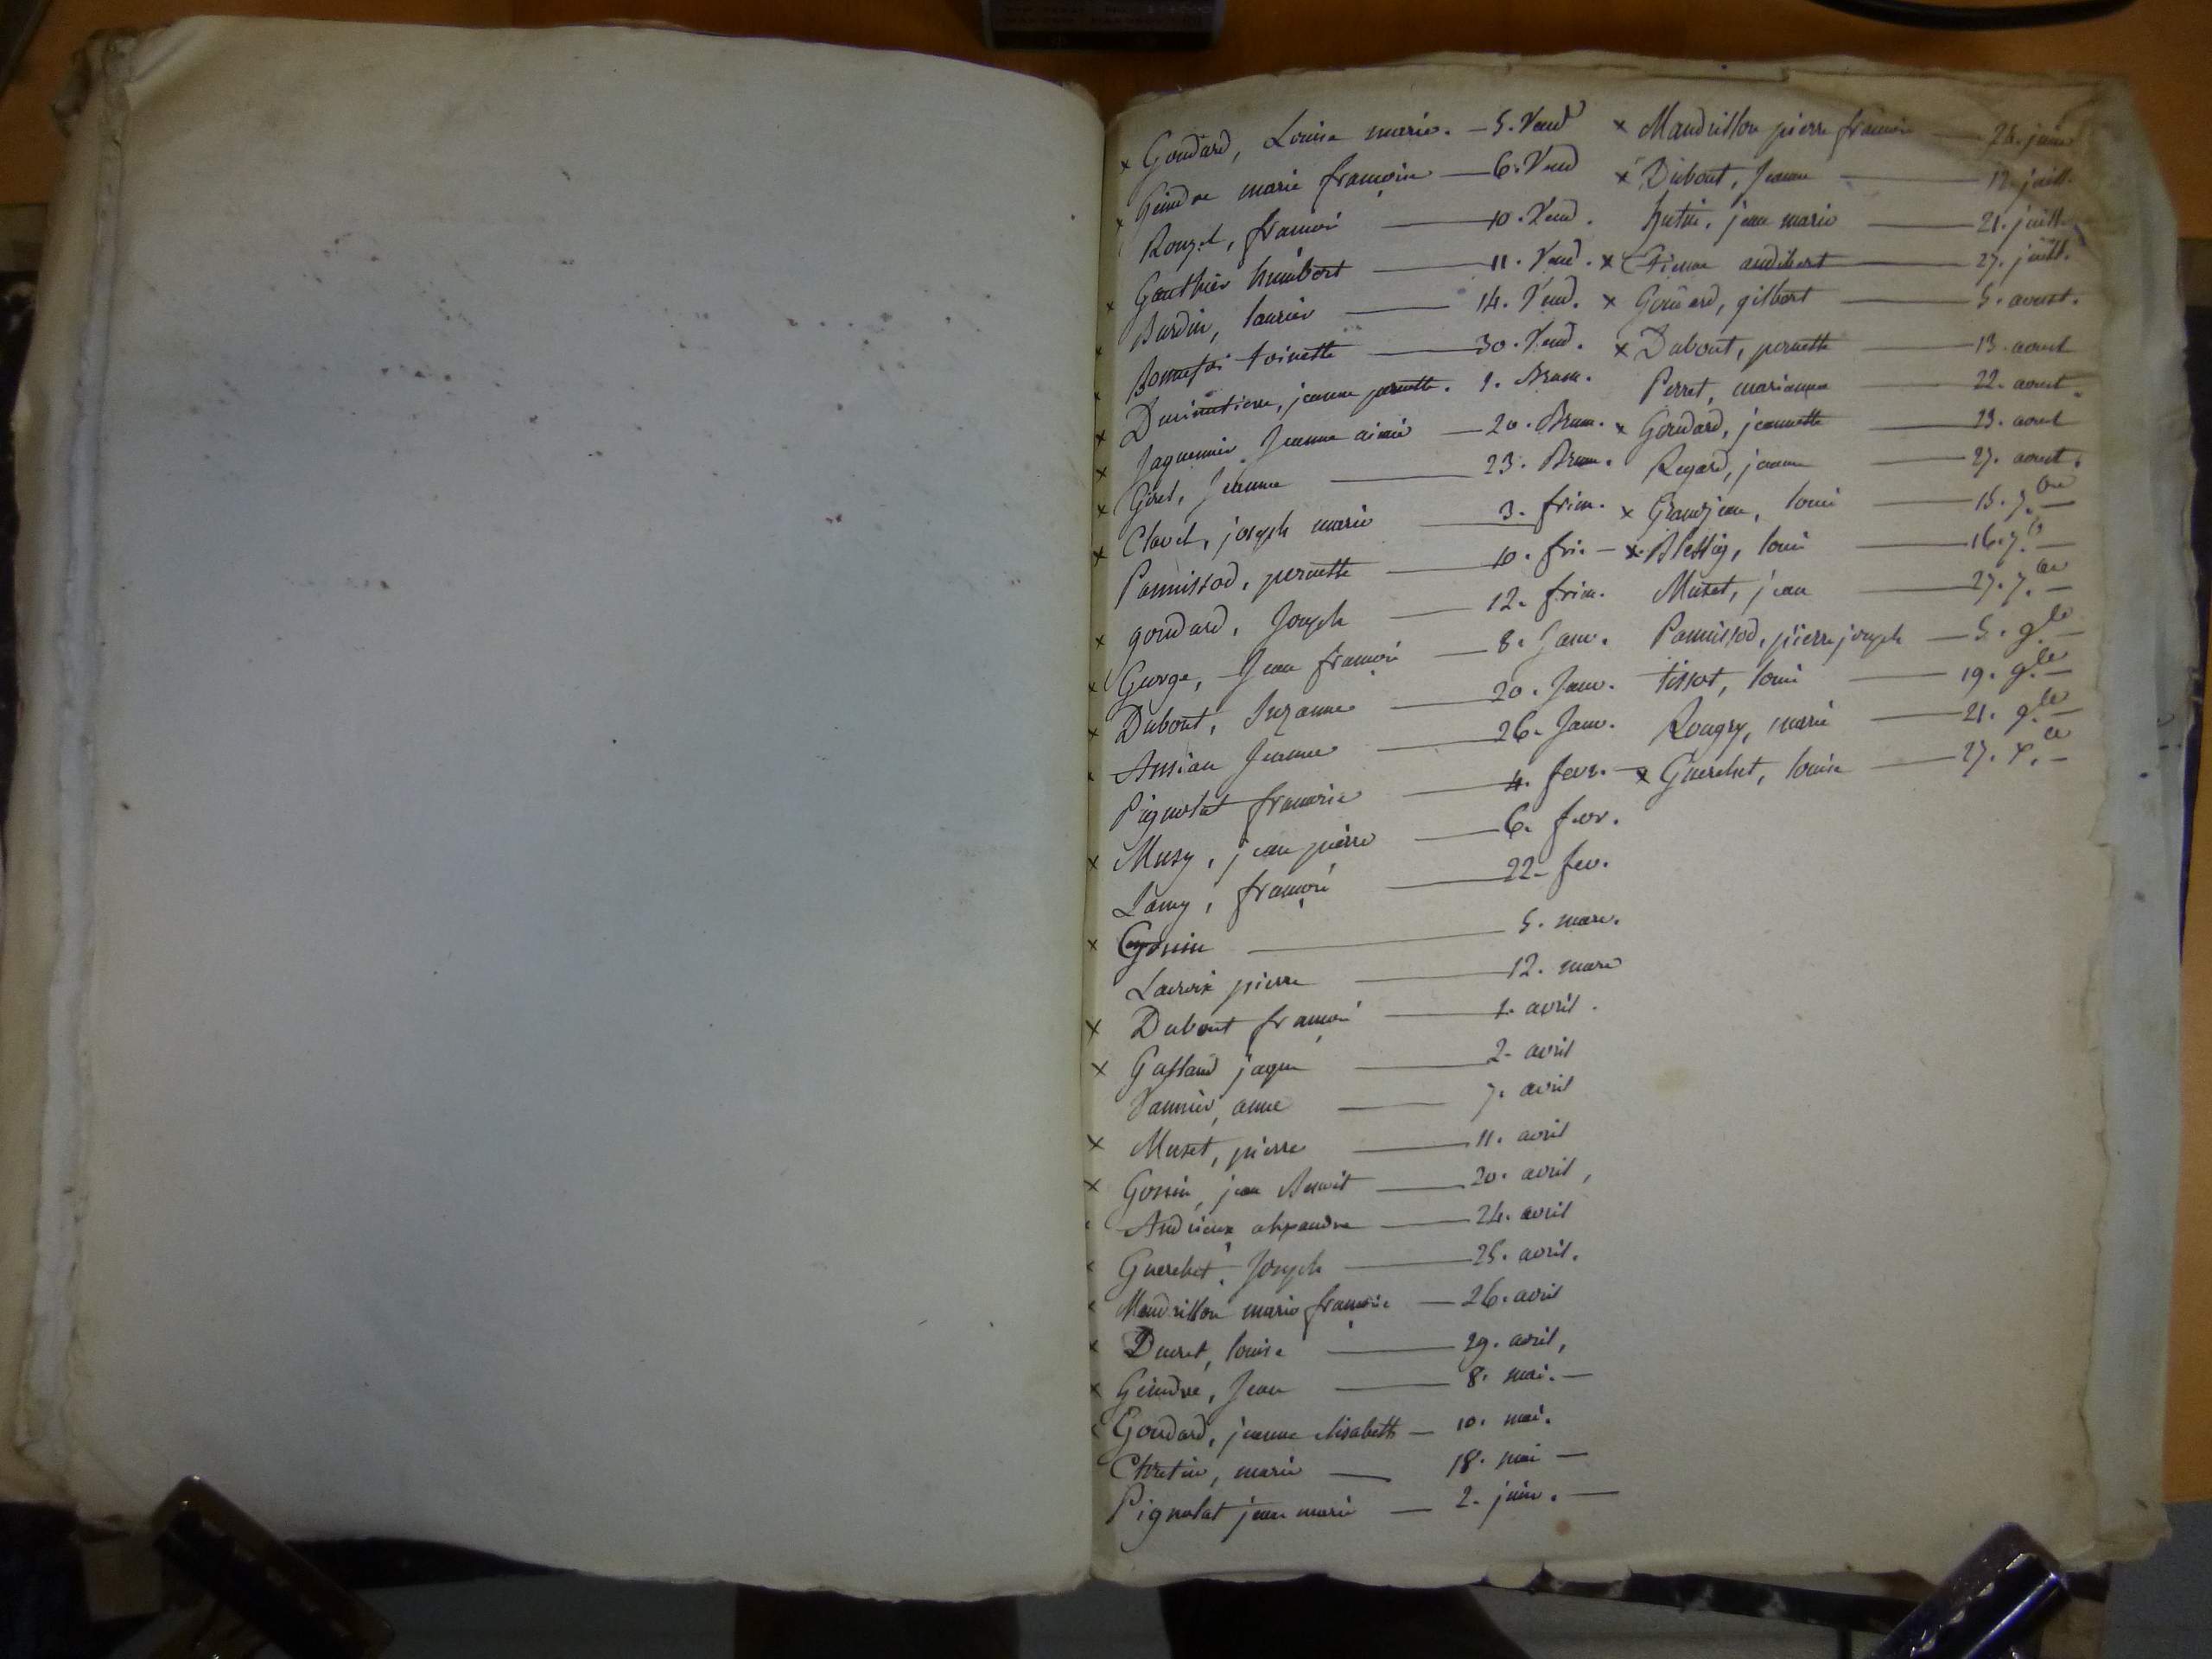 × Goudard, Louise marie. — 5. Vend
× Geindre marie françoise — 6. Vend
Rouzet, françois — 10. Vend.
× Gauthier humbert — 11. Vend.
Burdin, — 14. Vend.
Bonnefoi toinette — 30. Vend.
× jeanne pernette. 1. Brum.
× Jaquemier Jeanne aimée — 20. Brum.
× Giret, Jeanne — 23. Brum.
× Clavel, joseph marie — 3. frim.
Pannissod, pernette — 10. fri. —
× goudard, Joseph — 12. frim.
× George, Jean françois — 8. Janv.
× Dubout, Suzanne — 20. Janv.
Ansian Jeanne — 26. Janv.
Pignolat françoise — 4. fevr. —
× Musy, jean pierre — 6. fevr.
Lamy, françois — 22. fev.
× Gonin — 5. mars.
Lacroix pierre — 12. mars
× Dubout françois — 1. avril.
× Galland jaques — 2. avril
anne — 7. avril
× Muset, pierre — 11. avril
× Gonin, jean Benoit — 20. avril,
Andrieux alexandre — 24. avril
× Guerchet, Joseph — 25. avril.
× Mandrillon marie françoise — 26. avril
× Ducret, louise — 29. avril,
× Geindre, Jean — 8. mai. —
× Goudard, jeanne elisabeth — 10. mai.
Chretin, marie — 18. mai —
Pignolat jean marie — 2. juin. —
× Mandrillon pierre françois — 26. juin
× Dubout, Jeanne — 12. juill.
jean marie — 21. juill.
× Etienne audibert — 27. juill.
× Goudard, gilbert — 5. aoust.
× Dubout, pernette — 13. aout
Perret, marianne — 22. aout.
× Goudard, jeannette — 23. aout
Regard, jeanne — 27. aout.
× Grandjean, louis — 15. 7.bre
× louis — 16. 7.b
Muset, jean — 27. 7.bre
Pannissod, pierre joseph — 5. 9.bre
tissot, louis — 19. 9.bre
Rougey, marie — 21. 9.bre
× Guerchet, louise — 27. x.bre